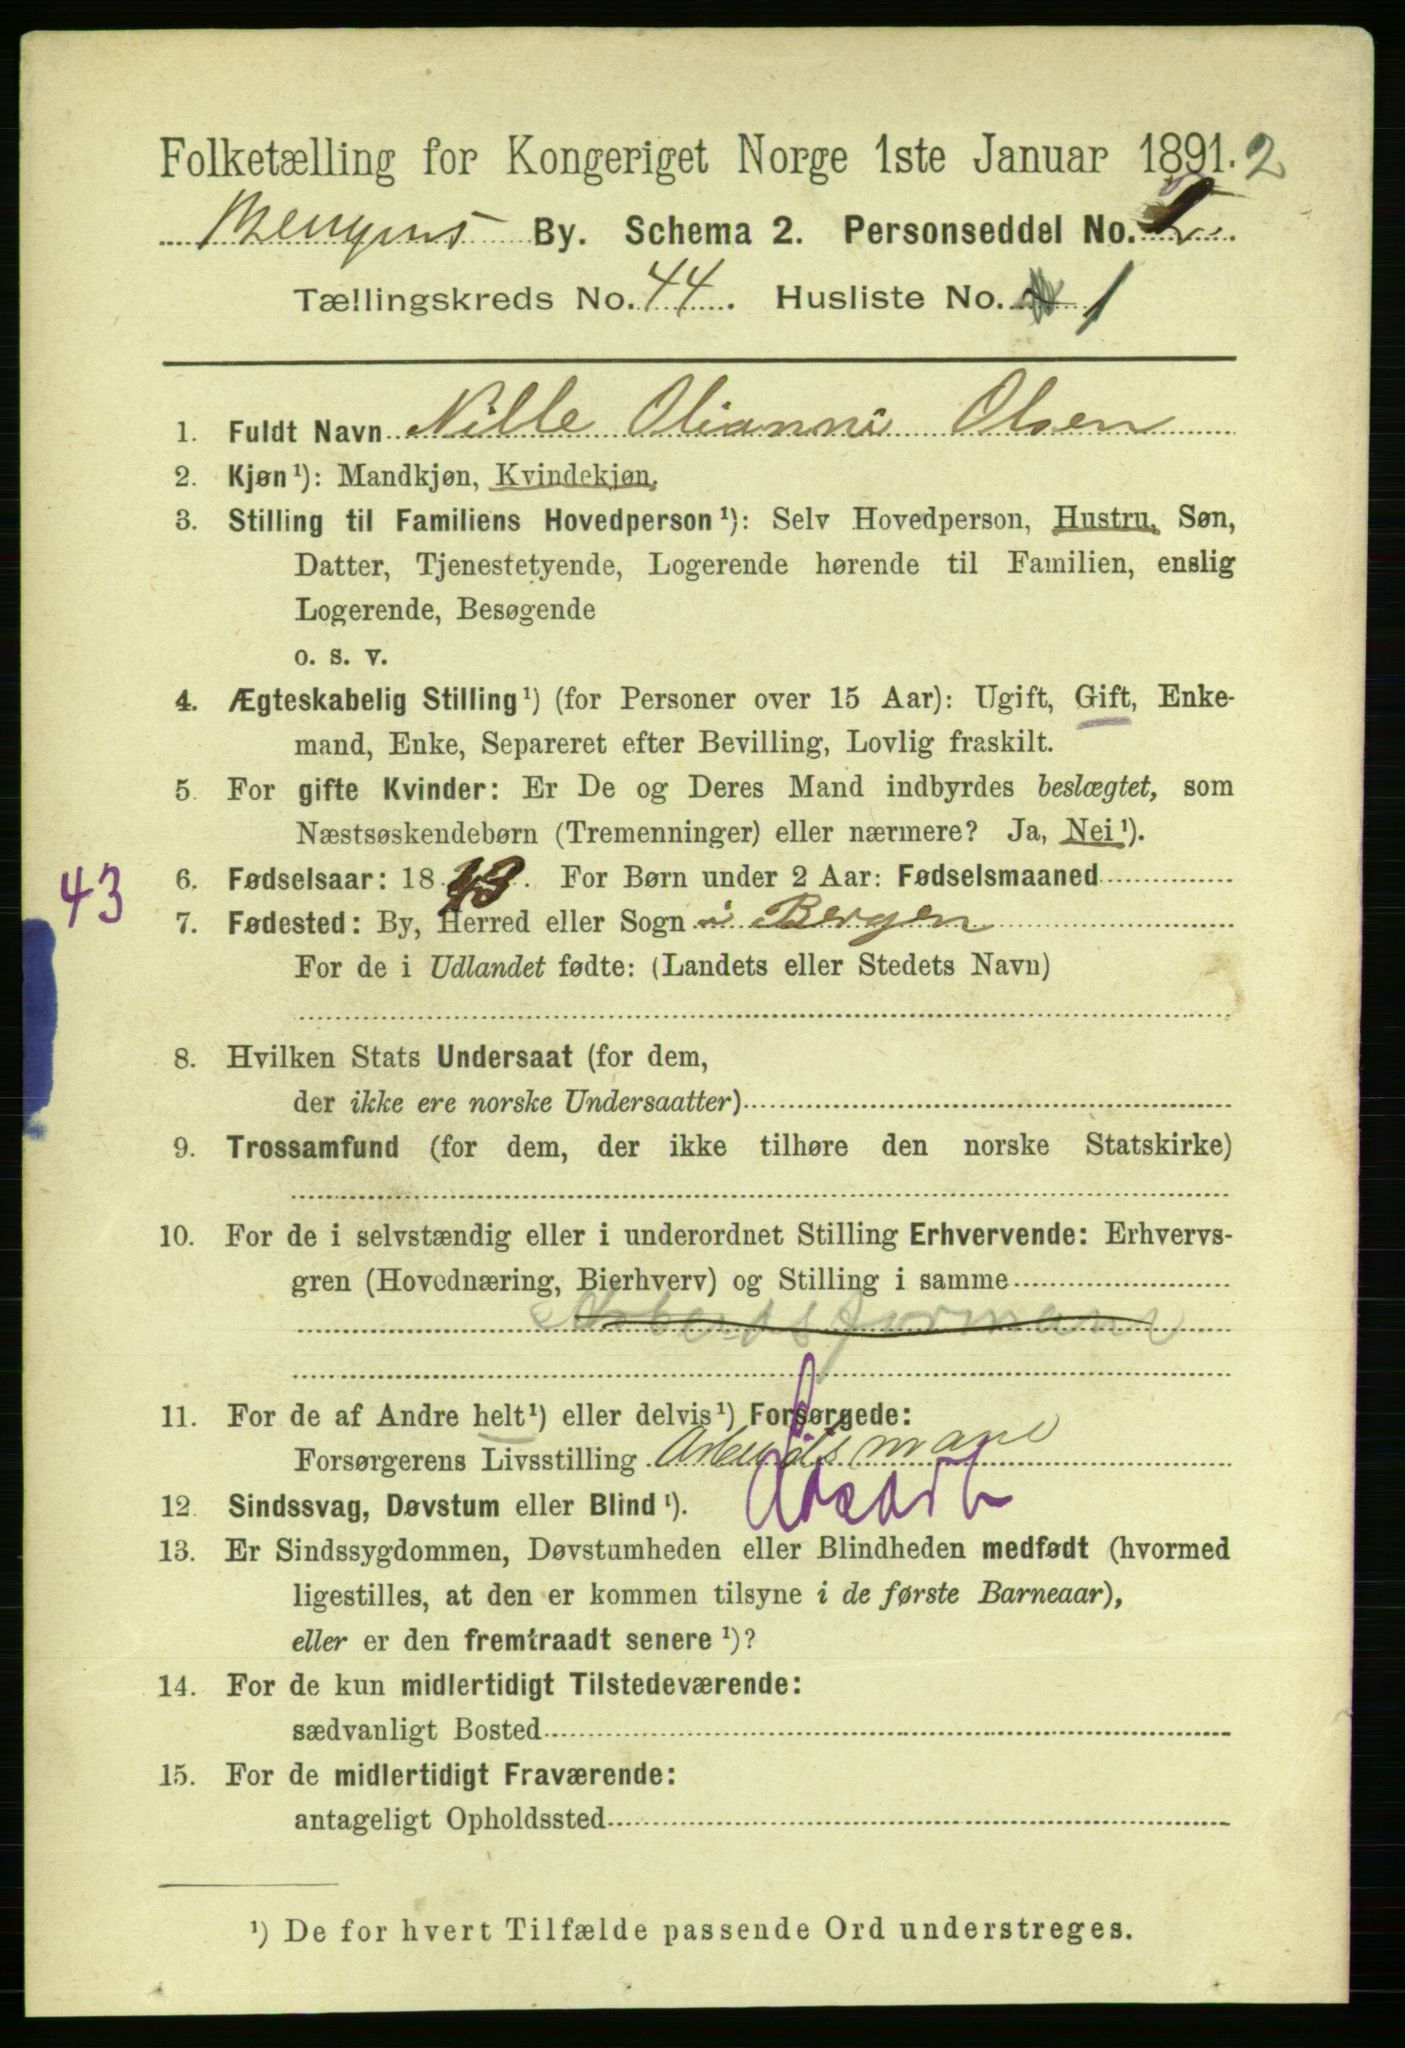 Folketælling for Kongeriget Norge 1ste Januar 1891. 2
Bergens By. Schema 2. Personseddel No. 2
Tællingskreds No. 44. Husliste No. 1
1. Fuldt Navn Nille Olianne Olsen
2. Kjøn¹): Mandkjøn, Kvindekjøn.
3. Stilling til Familiens Hovedperson¹): Selv Hovedperson, Hustru, Søn,
Datter, Tjenestetyende, Logerende hørende til Familien, enslig
Logerende, Besøgende
o. s. v.
4. Ægteskabelig Stilling¹) (for Personer over 15 Aar): Ugift, Gift, Enke-
mand, Enke, Separeret efter Bevilling, Lovlig fraskilt.
5. For gifte Kvinder: Er De og Deres Mand indbyrdes beslægtet, som
Næstsøskendebørn (Tremenninger) eller nærmere? Ja, Nei¹).
43
6. Fødselsaar: 1843. For Børn under 2 Aar: Fødselsmaaned
7. Fødested: By, Herred eller Sogn i Bergen
For de i Udlandet fødte: (Landets eller Stedets Navn)
8. Hvilken Stats Undersaat (for dem,
der ikke ere norske Undersaatter)
9. Trossamfund (for dem, der ikke tilhøre den norske Statskirke)
10. For de i selvstændig eller i underordnet Stilling Erhvervende: Erhvervs-
gren (Hovednæring, Bierhverv) og Stilling i samme
Arbeidsformann
11. For de af Andre helt¹) eller delvis¹) Forsørgede:
Forsørgerens Livsstilling Arbeidsmand
12. Sindssvag, Døvstum eller Blind¹).
13. Er Sindssygdommen, Døvstumheden eller Blindheden medfødt (hvormed
ligestilles, at den er kommen tilsyne i de første Barneaar),
eller er den fremtraadt senere¹)?
14. For de kun midlertidigt Tilstedeværende:
sædvanligt Bosted
15. For de midlertidigt Fraværende:
antageligt Opholdssted
¹) De for hvert Tilfælde passende Ord understreges.